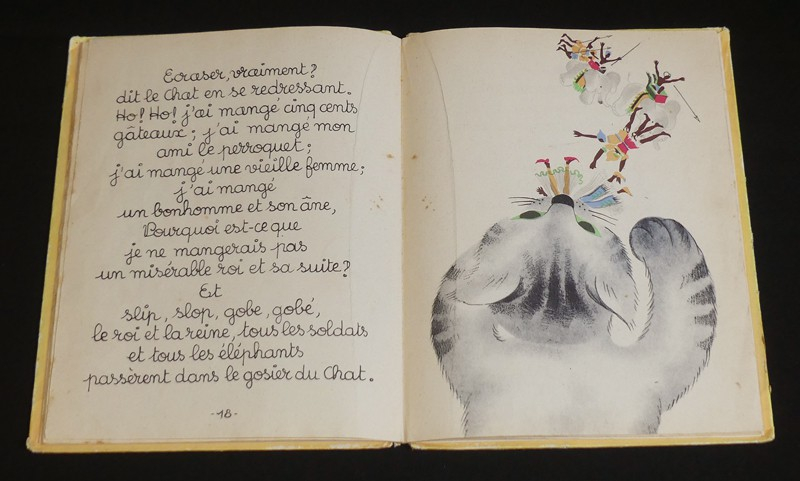 Ecraser, vraiment?
dit le Chat en se redressant.
Ho! Ho! j'ai mangé cinq cents
gâteaux; j'ai mangé mon
ami le perroquet;
j'ai mangé une vieille femme;
j'ai mangé
un bonhomme et son âne,
Pourquoi est-ce que
je ne mangerais pas
un misérable roi et sa suite?
Et
slip, slop, gobe, gobé,
le roi et la reine, tous les soldats
et tous les éléphants
passèrent dans le gosier du Chat.
-18-